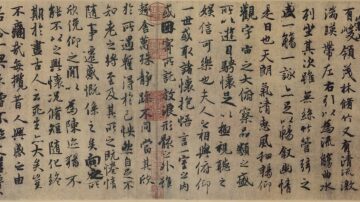 峻領茂林脩竹又有清流激
湍暎帶左右引以為流觴曲水
列坐其次雖無絲竹管弦之
盛一觴一詠亦足以暢敘幽情
是日也天朗氣清惠風和暢仰
觀宇宙之大俯察品類之盛
所以遊目騁懷足以極視聽之
娛信可樂也夫人之相與俯仰
一世或取諸懷抱悟言一室之內
或因寄所託放浪形骸之外雖
趣舍萬殊靜躁不同當其欣
於所遇蹔得於己怏然自足不
知老之將至及其所之既惓情
隨事遷感慨係之矣向之所
欣俛仰之間以為陳迹猶不
能不以之興懷況脩短隨化終
期於盡古人云死生亦大矣豈
不痛哉每攬昔人興感之由